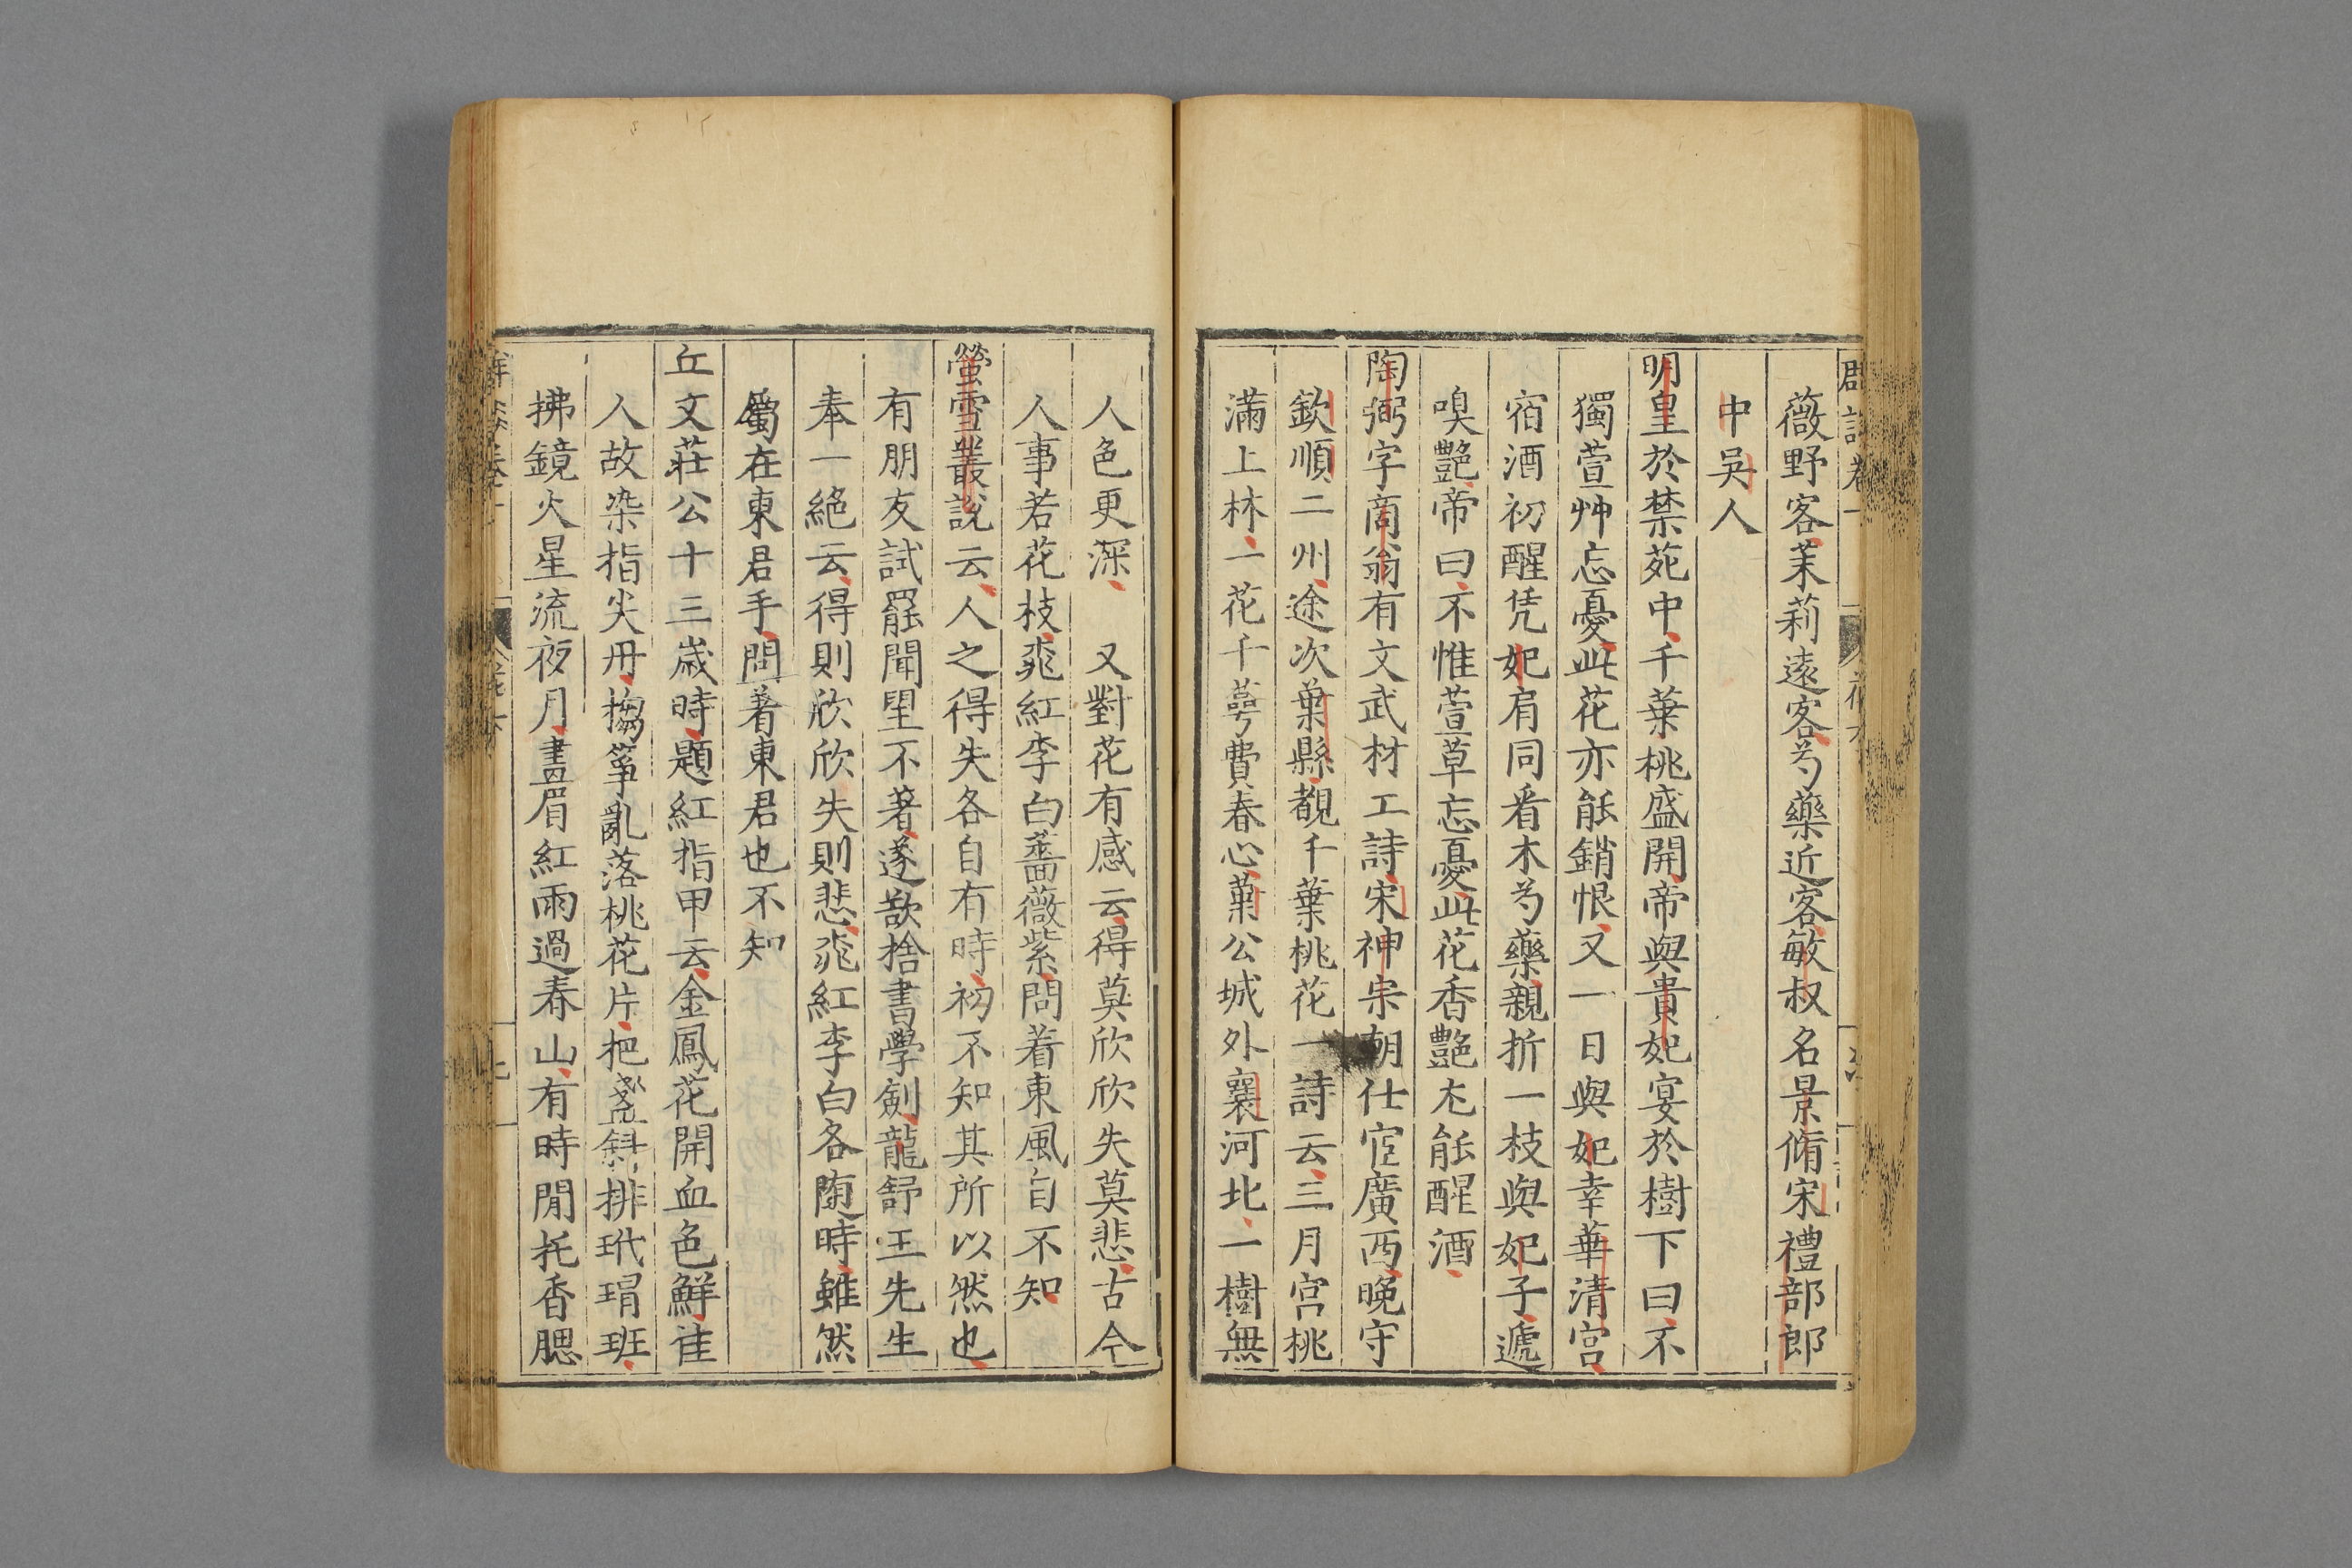 薇野客茉莉遠客芍藥近客敏叔名景脩宋禮部郎
中吳人
明皇於禁苑中千葉桃盛開帝與貴妃宴於樹下曰不
獨萱艸忘憂此花亦能銷恨又一日與妃幸華清宮
宿酒初醒凭妃肩同看木芍藥親折一枝與妃子遞
嗅艷帝曰不惟萱草忘憂此花香艷尤能醒酒
陶弼字商翁有文武材工詩宋神宗朝仕宦廣西晚守
欽順二州途次葉縣覩千葉桃花一詩云三月宮桃
滿上林一花千蕚費春心葉公城外襄河北一樹無
人色更深 又對花有感云得莫欣欣失莫悲古今
人事若花枝桃紅李白薔薇紫問着東風自不知
螢雪叢說云人之得失各自有時初不知其所以然也
有朋友試罷聞望不著遂欲捨書學劍龍舒王先生
奉一絕云得則欣欣失則悲桃紅李白各隨時雖然
蜀在東君手問著東君也不知
丘文莊公十三歲時題紅指甲云金鳳花開血色鮮佳
人故染指尖丹搊箏亂落桃花片把盞斜排玳瑁班
拂鏡火星流夜月畫眉紅雨過春山有時閒托香腮